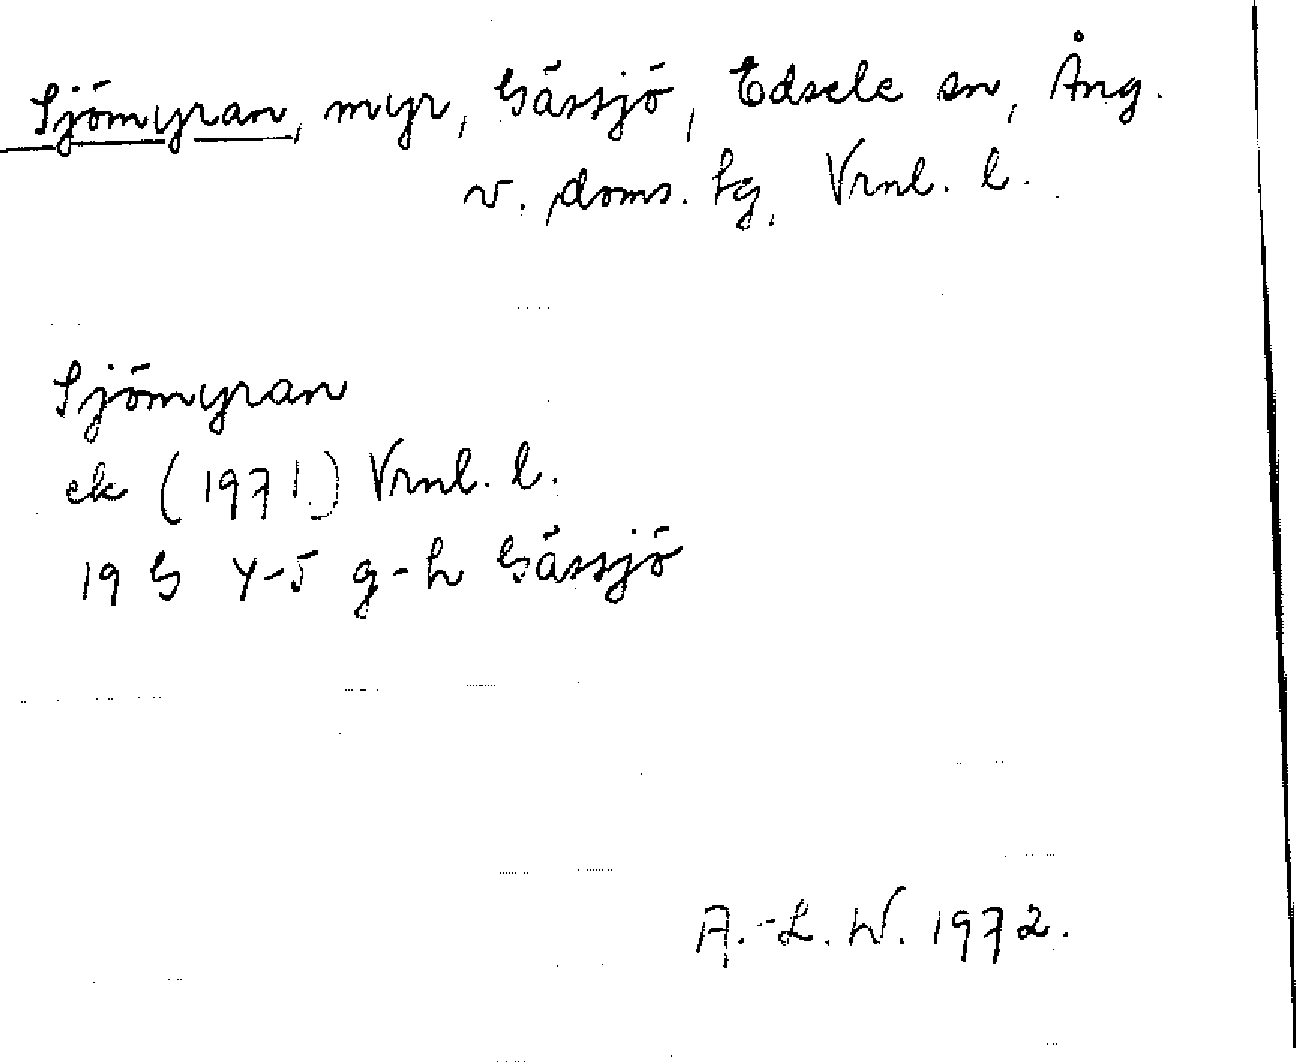 Sjömyran, myr, Gässjö, Edsele sn, Ång.
v. doms. fg. Vrnl. l.
Sjömyran
ek (1971) Vrnl. l.
19 G 4-5 g-h Gässjö
A.-L. W. 1972.